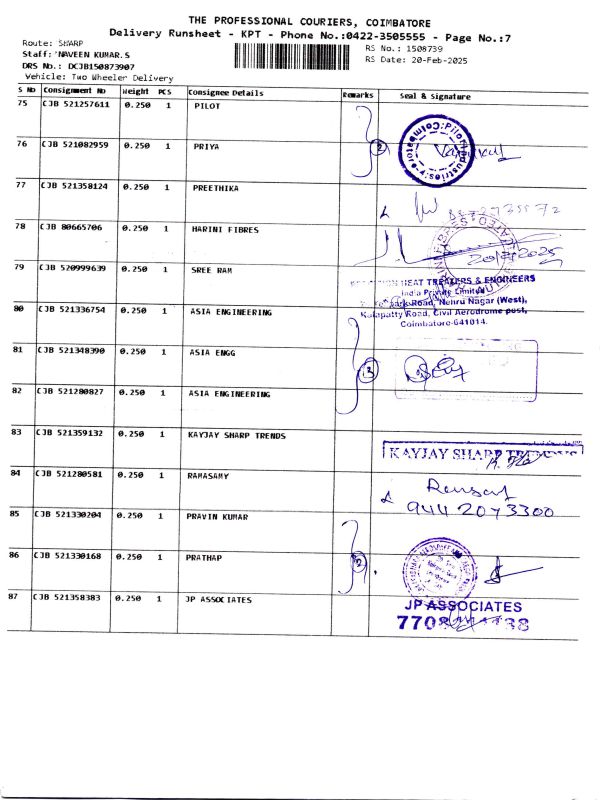 THE PROFESSIONAL COURIERS, COIMBATORE
Delivery Runsheet - KPT - Phone No.:0422-3505555 - Page No.:7
Route: SHARP
RS No.: 1508739
Staff: NAVEEN KUMAR.S
RS Date: 20-Feb-2025
DRS No.: DCJB150873907
Vehicle: Two Wheeler Delivery
S No Consignment No Weight PCS Consignee Details Remarks Seal & Signature
75 CJB 521257611 0.250 1 PILOT
76 CJB 521082959 0.250 1 PRIYA 2
77 CJB 521358124 0.250 1 PREETHIKA
78 CJB 80665706 0.250 1 HARINI FIBRES
20/2/2025
79 CJB 520999639 0.250 1 SREE RAM
HEAT TREATERS & ENGINEERS
India Private Limited
Road, Nehru Nagar (West),
Kalapatty Road, Civil Aerodrome post,
Coimbatore-641014.
80 CJB 521336754 0.250 1 ASIA ENGINEERING
81 CJB 521348390 0.250 1 ASIA ENGG 3
82 CJB 521280827 0.250 1 ASIA ENGINEERING
83 CJB 521359132 0.250 1 KAYJAY SHARP TRENDS
KAYJAY SHARP TRENDS
84 CJB 521280581 0.250 1 RAMASAMY
944 2073300
85 CJB 521330204 0.250 1 PRAVIN KUMAR
86 CJB 521330168 0.250 1 PRATHAP 2
87 CJB 521358383 0.250 1 JP ASSOCIATES
JP ASSOCIATES